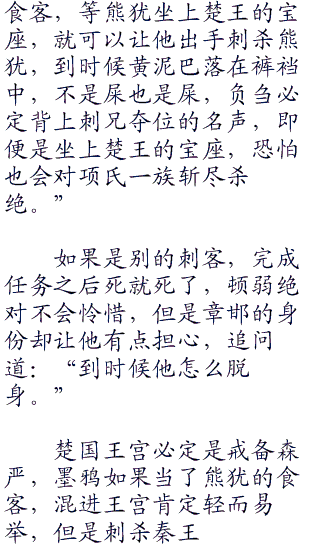 食客，等熊犹坐上楚王的宝
座，就可以让他出手刺杀熊
犹，到时候黄泥巴落在裤裆
中，不是屎也是屎，负刍必
定背上刺兄夺位的名声，即
便是坐上楚王的宝座，恐怕
也会对项氏一族斩尽杀
绝。”
如果是别的刺客，完成
任务之后死就死了，顿弱绝
对不会怜惜，但是章邯的身
份却让他有点担心，追问
道：“到时候他怎么脱
身。”
楚国王宫必定是戒备森
严，墨鸦如果当了熊犹的食
客，混进王宫肯定轻而易
举，但是刺杀秦王